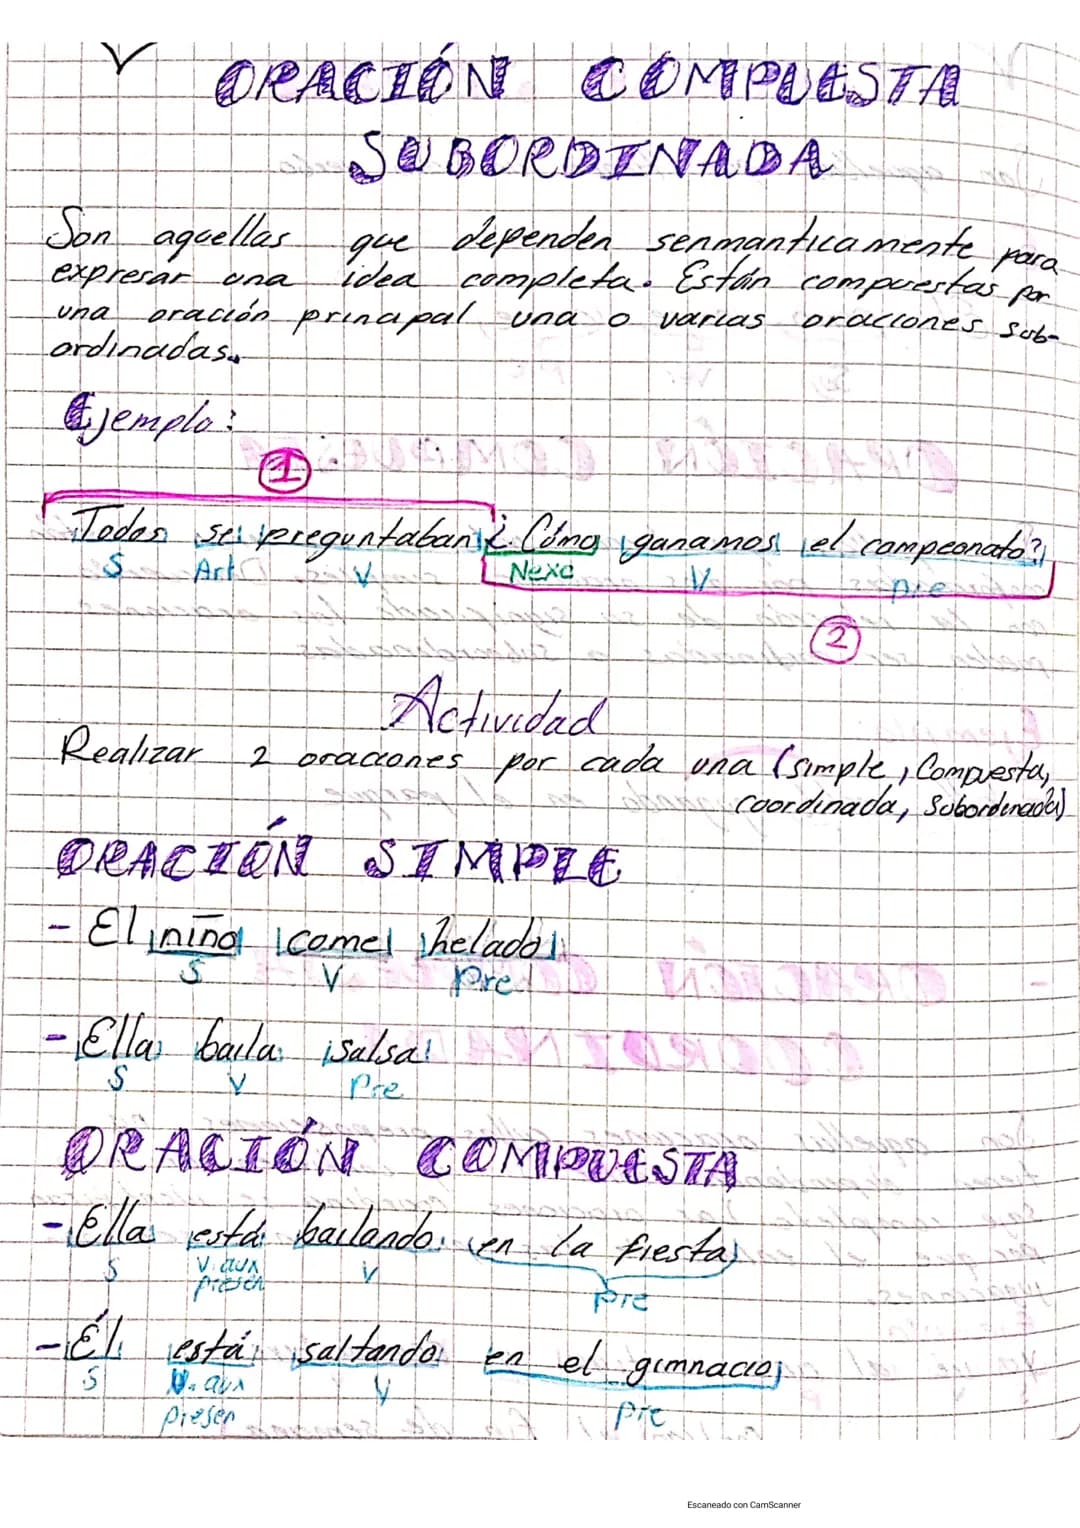 ORACIÓN COMPUESTA
SUBORDINADA
Son aquellas que dependen senmanticamente para
expresar una idea completa. Están compuestas por
una oración principal una o varias oraciones sub-
ordinadas.
Ejemplo:
1
Todos se preguntaban ¿Cómo ganamos el campeonato?
S Art V Nexo V Pre
2
Actividad
Realizar 2 oraciones por cada una (simple, Compuesta,
coordinada, Subordinada)
ORACIÓN SIMPLE
- El niño come helado
S V Pre
- Ella baila salsa
S V Pre
ORACIÓN COMPUESTA
- Ella está bailando en la fiesta
S V. aux V
presen Pre
- Él está saltando en el gimnacio
S V. aux V
presen Pre
Escaneado con CamScanner